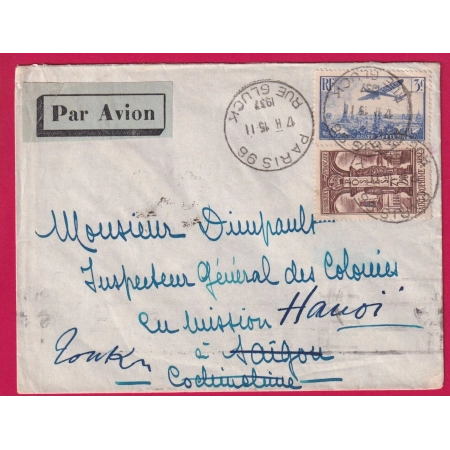 Par Avion
PARIS 96
17 II 15 11
1937
RUE GLUCK
RF 3f
Monsieur Dimpault
Inspecteur Général des Colonies
en mission Hanoï
à Saïgon
Tonkin
Cochinchine